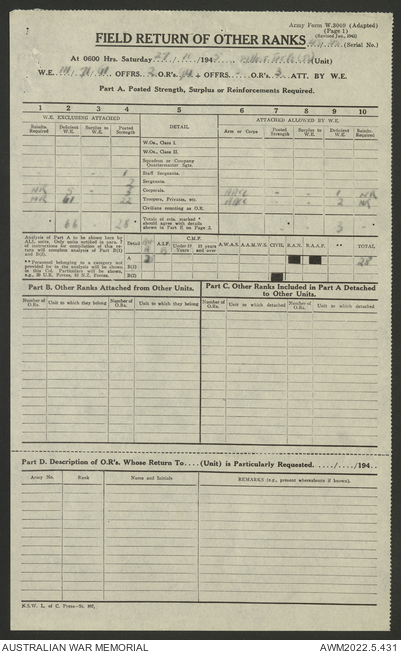 Army Form W.3009 (Adapted)
(Page 1)
(Revised Jan., 1943)
FIELD RETURN OF OTHER RANKS (Serial No.)
At 0600 Hrs. Saturday 194 (Unit)
W.E. OFFRS. O.R's. + OFFRS. O.R's. ATT. BY W.E.
Part A. Posted Strength, Surplus or Reinforcements Required.
1 2 3 4 5 6 7 8 9 10
W.E. EXCLUDING ATTACHED ATTACHED ALLOWED BY W.E.
Reinfts. Required Deficient W.E. Surplus to W.E. Posted Strength DETAIL Arm or Corps Posted Strength Surplus to W.E. Deficient W.E. Reinfts. Required
W.Os., Class I.
W.Os., Class II.
Squadron or Company Quartermaster Sgts.
Staff Sergeants. 1
Sergeants.
NR 5 - 3 Corporals. 1 NR
NR 61 22 Troopers, Privates, etc. 2 NR
Civilians counting as O.R.
* 66 28 * Totals of cols. marked * should agree with details shown in Part E on Page 2. * 3
Analysis of Part A to be shown here by ALL units. Only units notified in para. 7 of instructions for compilation of this return will complete analysis of Part B(1) and B(2).
**Personnel belonging to a category not provided for in the analysis will be shown in this Col. Particulars will be shown, e.g., 20 U.S. Forces, 10 N.Z. Forces.
Detail A.I.F. C.M.F. Under 19 Years 19 years and over A.W.A.S. A.A.M.W.S. CIVIL R.A.N. R.A.A.F. ** TOTAL
A 28 28
B(1)
B(2)
Part B. Other Ranks Attached from Other Units. Part C. Other Ranks Included in Part A Detached to Other Units.
Number of O.Rs. Unit to which they belong Number of O.Rs. Unit to which they belong Number of O.Rs. Unit to which detached Number of O.Rs. Unit to which detached
Part D. Description of O.R's. Whose Return To.... (Unit) is Particularly Requested. ..../..../194..
Army No. Rank Name and Initials REMARKS (e.g., present whereabouts if known).
N.S.W. L. of C. Press—
AUSTRALIAN WAR MEMORIAL AWM2022.5.431